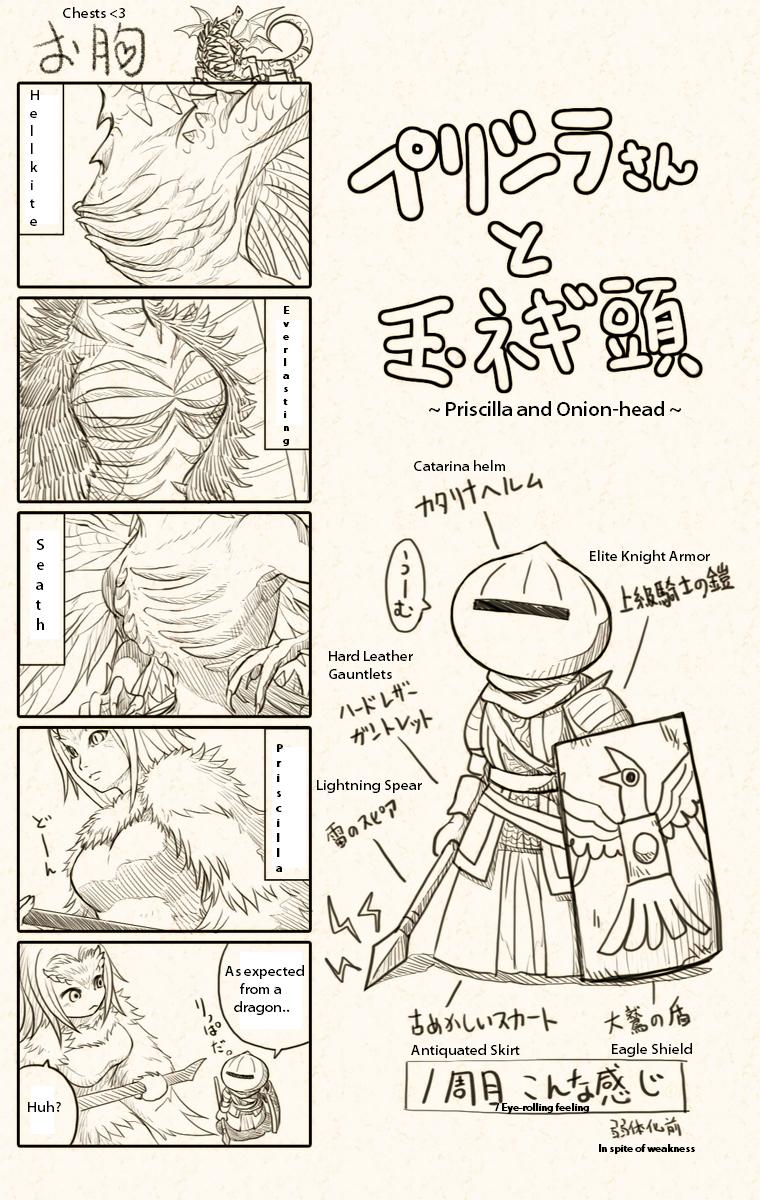 Chests <3
お胸
Hellkite
Everlasting
Seath
Priscilla
どーん
As expected
from a
dragon..
りっぱだ。
Huh?
プリシラさん
と
玉ネギ頭
~ Priscilla and Onion-head ~
Catarina helm
カタリナヘルム
うーむ
Elite Knight Armor
上級騎士の鎧
Hard Leather
Gauntlets
ハードレザー
ガントレット
Lightning Spear
雷のスピア
古めかしいスカート
Antiquated Skirt
大鷲の盾
Eagle Shield
1周目 こんな感じ
7 Eye-rolling feeling
弱体化前
In spite of weakness